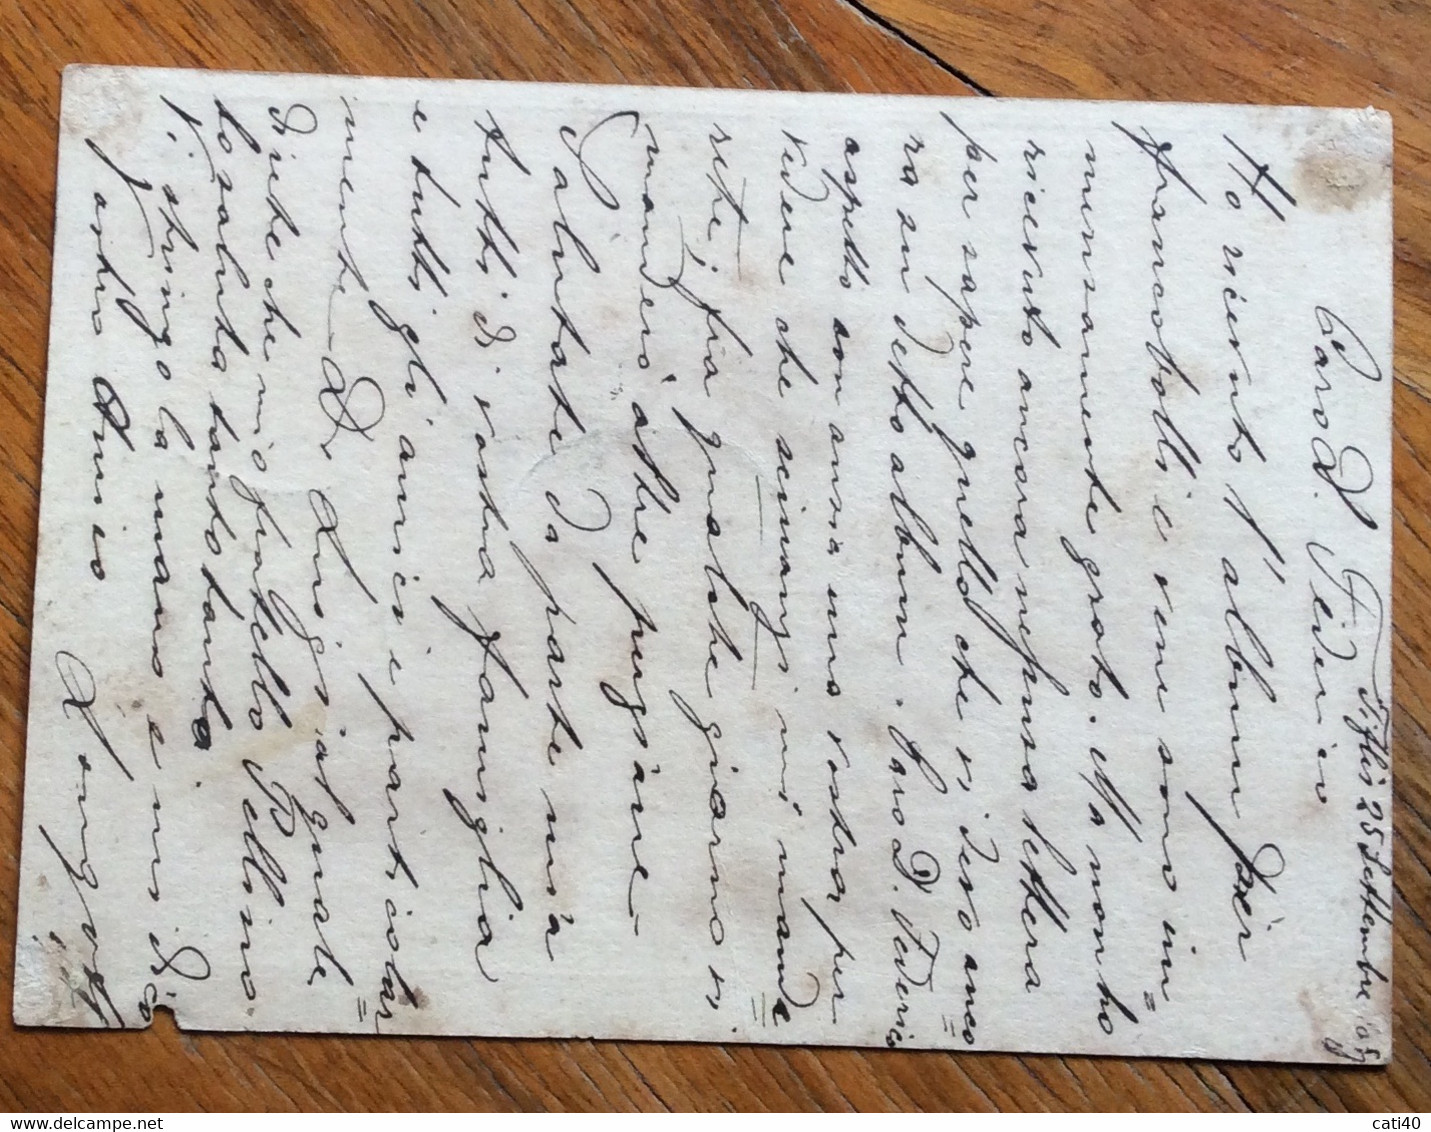 Tiflis 25 Settembre
Caro D. Federico
Ho ricevuto l'album pèr
francobolli e vene sono im=
mensamente grato. Ma non ho
ricevuto ancora nepuna lettera
per sapere quello che vi devo anco=
ra su detto album. Caro D. Federico
aspetto con ansia una vostra per
vedere che scivangi mi mande=
rete; fra qualche giorno vi
manderò altre pugsane
Salutate da parte mia
tutti di vostra famiglia
e tutti gli amici e particolar=
mente D. Luigi al quale
direte che mio fratello Bellino
lo saluta tanto tanto.
Vi stringo la mano e mi dico
Vostro Amico
www.delcampe.net
cati40